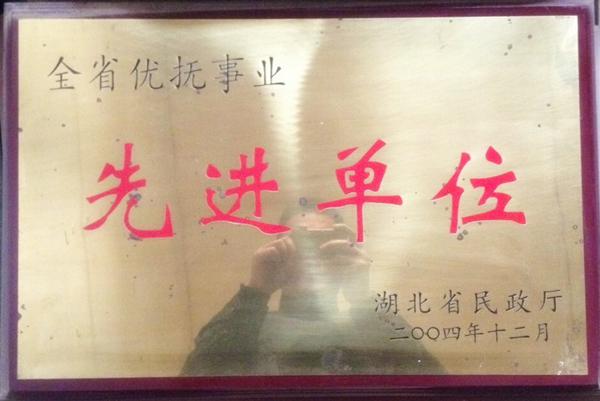 全省优抚事业
先进单位
湖北省民政厅
二〇〇四年十二月